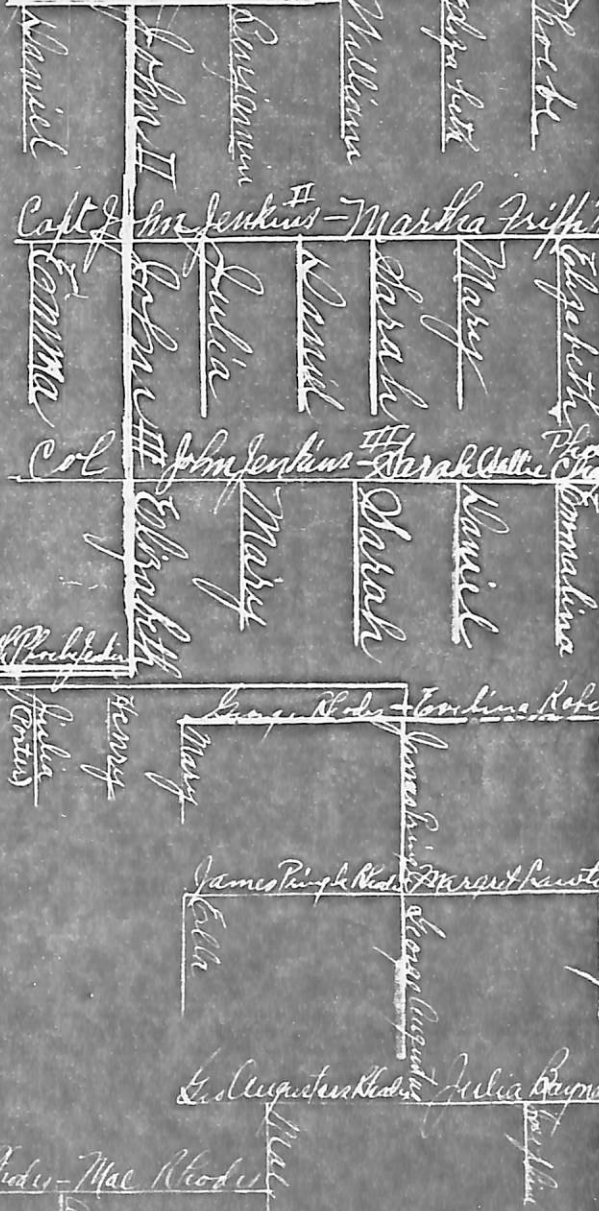 Daniel
John II
Benjamin
William
Elizabeth
Phoebe
Capt John Jenkins II - Martha Fripp
Emma
John III
Julia
Daniel
Sarah
Mary
Elizabeth
Col John Jenkins III - Sarah
Elizabeth
Mary
Sarah
Daniel
Emmalina
Julia
(Porter)
Henry
Mary
George Rhodes - Evelina
James Pringle
James Pringle Rhodes Margret
Ella
George Augustus
Geo Augustus Rhodes Julia
Mae
- Mae Rhodes